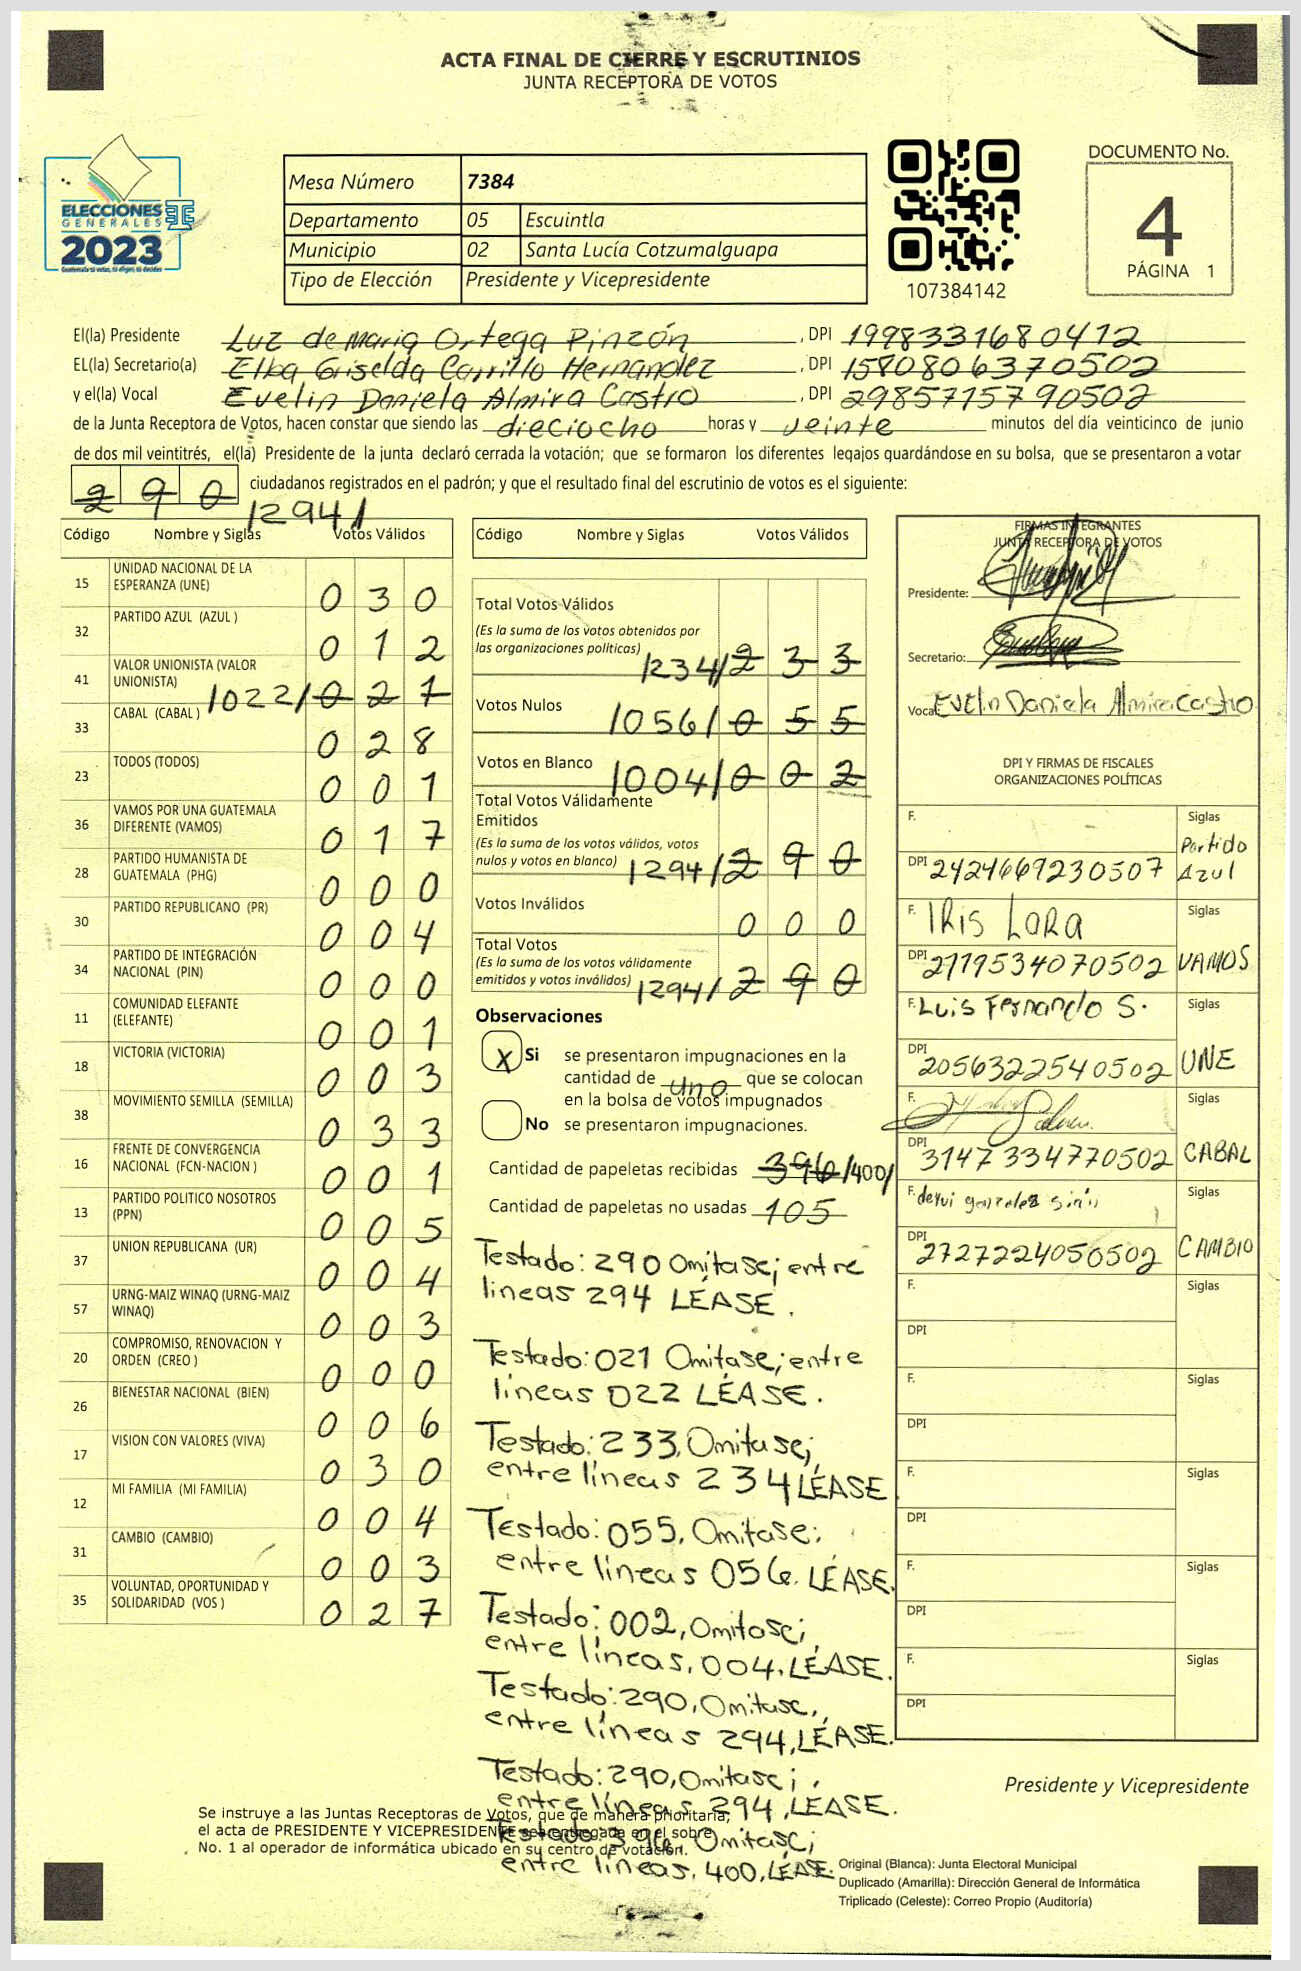 ACTA FINAL DE CIERRE Y ESCRUTINIOS
JUNTA RECEPTORA DE VOTOS
ELECCIONES
GENERALES
2023
Mesa Número 7384
Departamento 05 Escuintla
Municipio 02 Santa Lucía Cotzumalguapa
Tipo de Elección Presidente y Vicepresidente
107384142
DOCUMENTO No.
4
PÁGINA 1
El(la) Presidente Luz de Maria Ortega Pinzón, DPI 1998331680412
EL(la) Secretario(a) Elba Griselda Carrillo Hernandez, DPI 1580806370502
y el(la) Vocal Evelin Daniela Almira Castro, DPI 2985715790502
de la Junta Receptora de Votos, hacen constar que siendo las dieciocho horas y veinte minutos del día veinticinco de junio
de dos mil veintitrés, el(la) Presidente de la junta declaró cerrada la votación; que se formaron los diferentes legajos guardándose en su bolsa, que se presentaron a votar
290 ciudadanos registrados en el padrón; y que el resultado final del escrutinio de votos es el siguiente:
/294/
Código Nombre y Siglas Votos Válidos
15 UNIDAD NACIONAL DE LA
ESPERANZA (UNE) 0 3 0
32 PARTIDO AZUL (AZUL ) 0 1 2
41 VALOR UNIONISTA (VALOR
UNIONISTA) /022/ 0 2 1
33 CABAL (CABAL ) 0 2 8
23 TODOS (TODOS) 0 0 1
36 VAMOS POR UNA GUATEMALA
DIFERENTE (VAMOS) 0 1 7
28 PARTIDO HUMANISTA DE
GUATEMALA (PHG) 0 0 0
30 PARTIDO REPUBLICANO (PR) 0 0 4
34 PARTIDO DE INTEGRACIÓN
NACIONAL (PIN) 0 0 0
11 COMUNIDAD ELEFANTE
(ELEFANTE) 0 0 1
18 VICTORIA (VICTORIA) 0 0 3
38 MOVIMIENTO SEMILLA (SEMILLA) 0 3 3
16 FRENTE DE CONVERGENCIA
NACIONAL (FCN-NACION ) 0 0 1
13 PARTIDO POLITICO NOSOTROS
(PPN) 0 0 5
37 UNION REPUBLICANA (UR) 0 0 4
57 URNG-MAIZ WINAQ (URNG-MAIZ
WINAQ) 0 0 3
20 COMPROMISO, RENOVACION Y
ORDEN (CREO ) 0 0 0
26 BIENESTAR NACIONAL (BIEN) 0 0 6
17 VISION CON VALORES (VIVA) 0 3 0
12 MI FAMILIA (MI FAMILIA) 0 0 4
31 CAMBIO (CAMBIO) 0 0 3
35 VOLUNTAD, OPORTUNIDAD Y
SOLIDARIDAD (VOS ) 0 2 7
Código Nombre y Siglas Votos Válidos
Total Votos Válidos
(Es la suma de los votos obtenidos por
las organizaciones políticas) /234/ 2 3 3
Votos Nulos /056/ 0 5 5
Votos en Blanco /004/ 0 0 2
Total Votos Válidamente
Emitidos
(Es la suma de los votos válidos, votos
nulos y votos en blanco) /294/ 2 9 0
Votos Inválidos 0 0 0
Total Votos
(Es la suma de los votos válidamente
emitidos y votos inválidos) /294/ 2 9 0
Observaciones
X Si se presentaron impugnaciones en la
cantidad de uno que se colocan
en la bolsa de votos impugnados
No se presentaron impugnaciones.
Cantidad de papeletas recibidas 396/400/
Cantidad de papeletas no usadas 105
Testado: 290 Omitase; entre
lineas 294 LÉASE.
Testado: 021 Omitase; entre
líneas 022 LÉASE.
Testado: 233, Omitase;
entre líneas 234 LÉASE
Testado: 055, Omitase;
entre líneas 056. LÉASE.
Testado: 002, Omitase;
entre líneas, 004, LÉASE.
Testado: 290, Omitase,
entre líneas 294, LÉASE.
Testado: 290, Omitase;
entre líneas, 294, LÉASE.
Testado 396, Omitase;
entre líneas, 400, LÉASE.
FIRMAS INTEGRANTES
JUNTA RECEPTORA DE VOTOS
Presidente:
Secretario:
Vocal Evelin Daniela Almira Castro
DPI Y FIRMAS DE FISCALES
ORGANIZACIONES POLÍTICAS
F. Siglas
DPI 2424669230507 Partido Azul
F. IRIS LARA Siglas
DPI 2119534070502 VAMOS
F. Luis Fernando S. Siglas
DPI 2056322540502 UNE
F. Siglas
DPI 3147334770502 CABAL
F. Siglas
DPI 2727224050502 CAMBIO
F. Siglas
DPI
F. Siglas
DPI
F. Siglas
DPI
F. Siglas
DPI
F. Siglas
DPI
Presidente y Vicepresidente
Se instruye a las Juntas Receptoras de Votos, que de manera prioritaria,
el acta de PRESIDENTE Y VICEPRESIDENTE sea entregada en el sobre
No. 1 al operador de informática ubicado en su centro de votación.
Original (Blanca): Junta Electoral Municipal
Duplicado (Amarilla): Dirección General de Informática
Triplicado (Celeste): Correo Propio (Auditoría)